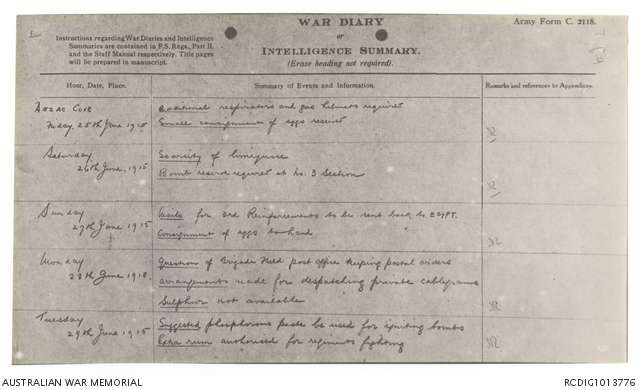 WAR DIARY
or
INTELLIGENCE SUMMARY.
(Erase heading not required).
Army Form C. 2118.
Instructions regarding War Diaries and Intelligence
Summaries are contained in F.S. Regs., Part II.
and the Staff Manual respectively. Title pages
will be prepared in manuscript.
Hour, Date, Place.
Summary of Events and Information.
Remarks and references to Appendices.
ANZAC COVE
Friday, 25th June 1915
Additional respirators and gas helmets required
Small consignment of eggs received
Saturday
26th June, 1915
Scarcity of
Bomb reserve required at No. 3 Section
Sunday
27th June 1915
for 3rd Reinforcements to be sent back to EGYPT.
Consignment of eggs
Monday
28th June 1915.
Question of Brigade Field post office keeping postal orders
arrangements made for despatching private cablegrams
Sulphur not available
Tuesday
29th June 1915
Suggested phosphorous paste be used for igniting bombs
Extra rum authorised for regiments fighting
AUSTRALIAN WAR MEMORIAL
RCDIG1013776